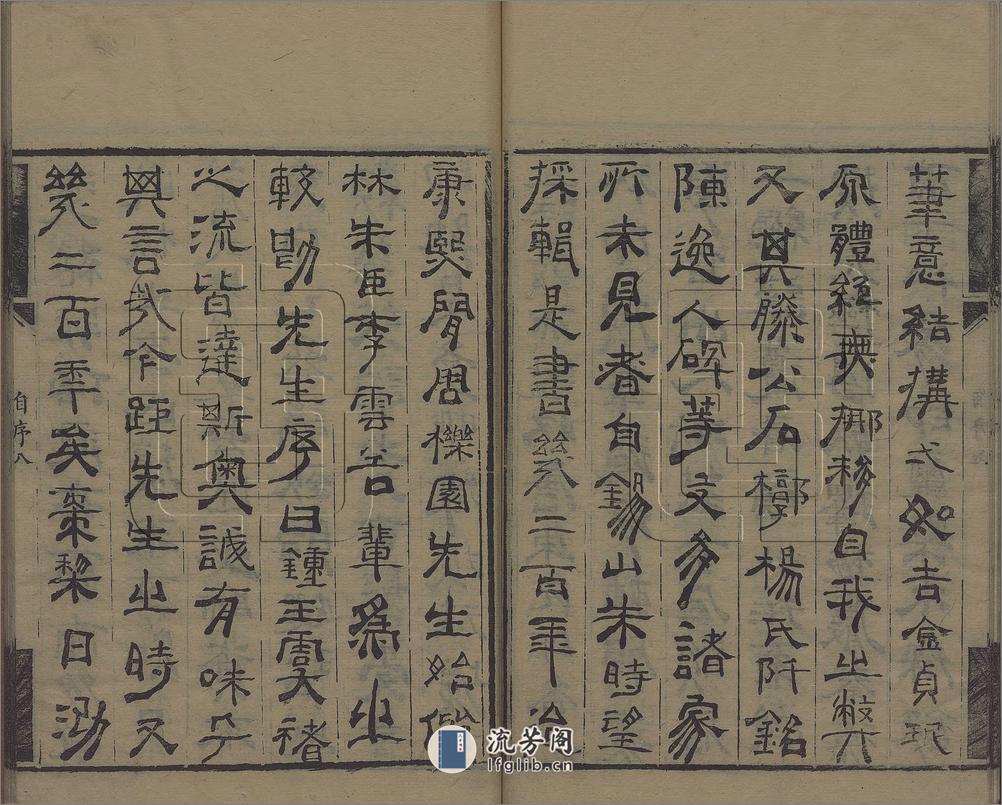 筆意結構弌如吉金貞珉
原體絕無挪移自我之弊
又其滕公石槨楊氏阡銘
陳逸人碑等文多諸家
所未見者自錫山朱時望
採輯是書幾二百年
康熙閒周櫟園先生始偕
林朱臣李雲谷輩為之
較勘先生序曰鍾王虞褚
之流皆達斯奧誠有味乎
其言哉今距先生之時又
幾二百年矣棗棃日泐
自序八
流芳阁
lfglib.cn